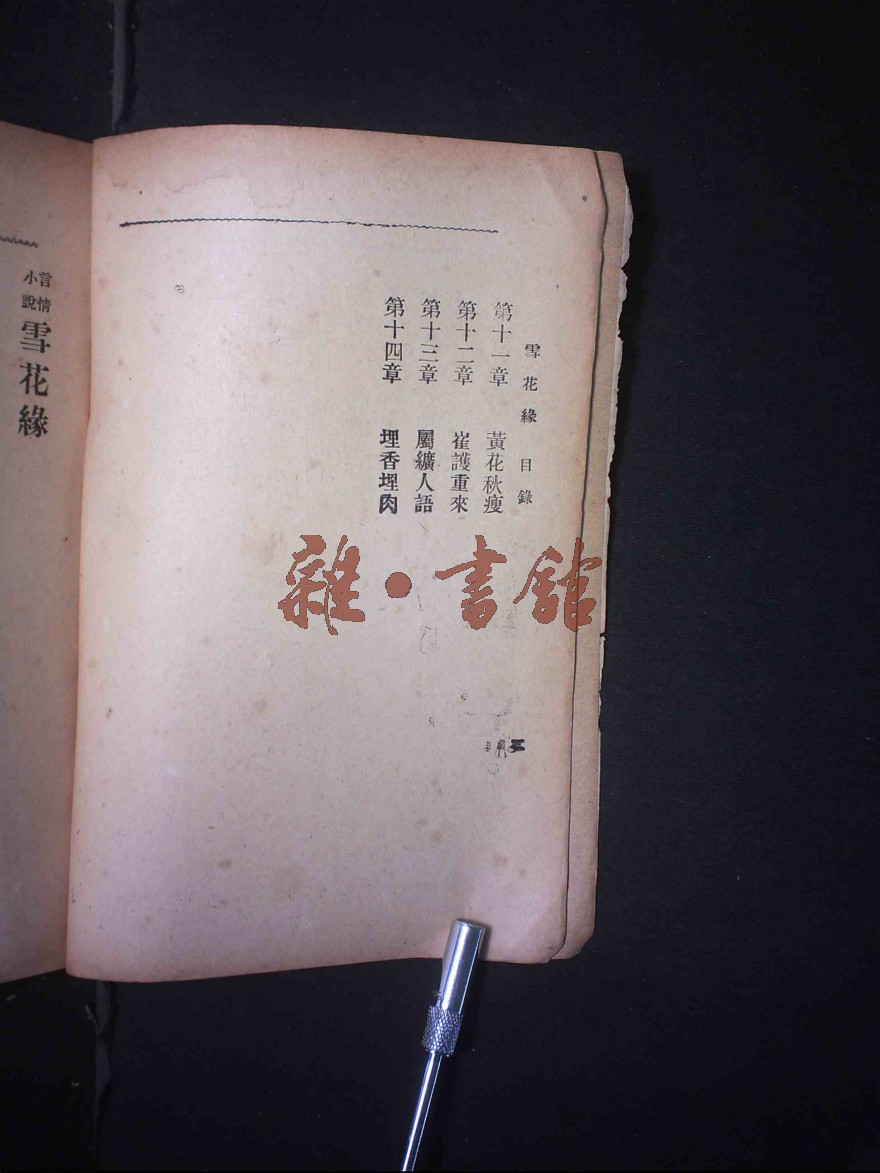 雪花緣 目錄
第十一章 黃花秋瘦
第十二章 崔護重來
第十三章 屬纊人語
第十四章 埋香埋肉
二
言情
小說
雪花緣
雜·書館